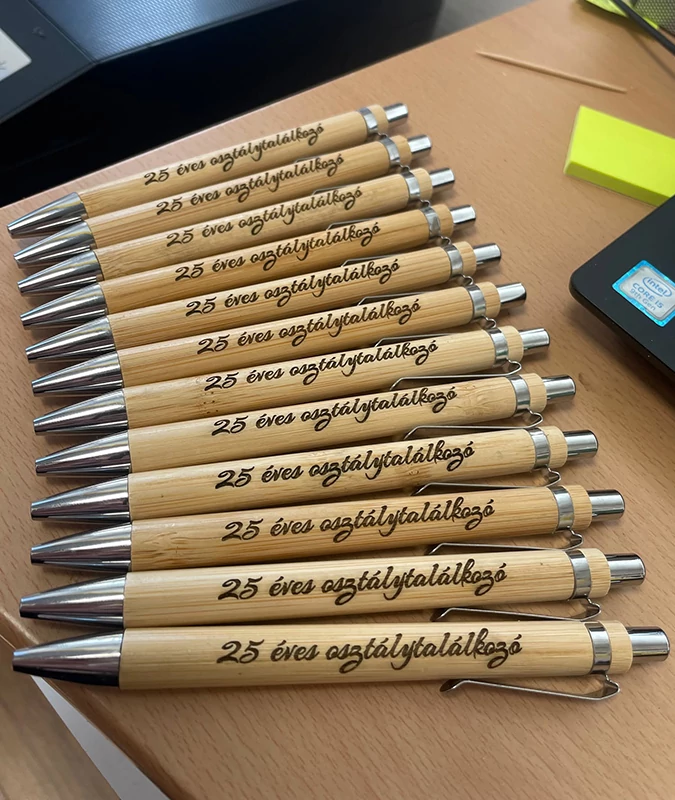 25 éves osztálytalálkozó
25 éves osztálytalálkozó
25 éves osztálytalálkozó
25 éves osztálytalálkozó
25 éves osztálytalálkozó
25 éves osztálytalálkozó
25 éves osztálytalálkozó
25 éves osztálytalálkozó
25 éves osztálytalálkozó
25 éves osztálytalálkozó
25 éves osztálytalálkozó
25 éves osztálytalálkozó
intel
CORE i5
9th Gen